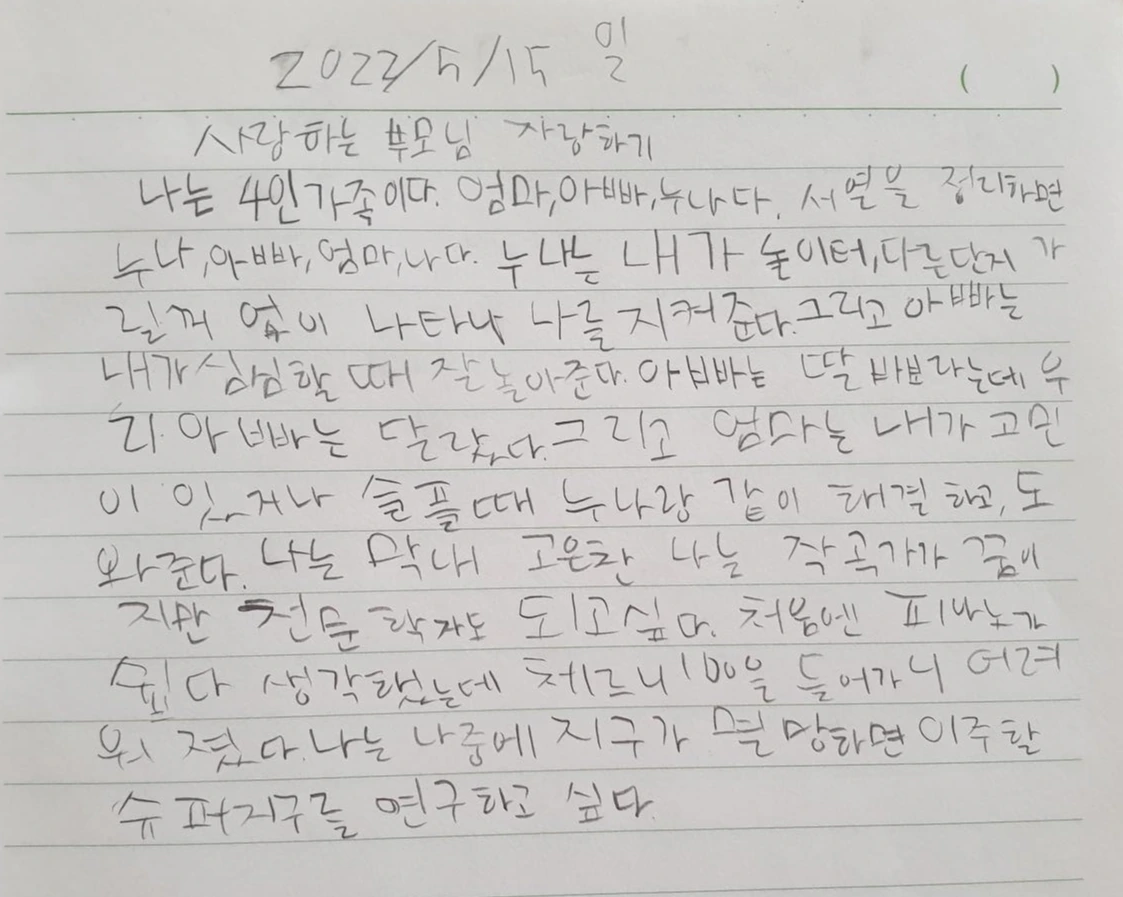 2022/5/15 일
( )
사랑하는 부모님 자랑하기
나는 4인가족이다. 엄마,아빠,누나다. 서열을 정리하면
누나,아빠,엄마,나다. 누나는 내가 놀이터,다른단지 가
릴꺼 없이 나타나 나를 지켜준다.그리고 아빠는
내가심심할 때 잘놀아준다.아빠는 딸 바보라는데 우
리 아빠는 달랐다.그리고 엄마는 내가 고민
이 있거나 슬플때 누나랑 같이 해결하고,도
와준다. 나는 막내 고은찬 나는 작곡가가 꿈이
지만 천문학자도 되고싶다. 처음엔 피아노가
쉽다 생각했는데 체르니100을 들어가니 어려
워 졌다.나는 나중에 지구가 멸망하면 이주할
슈퍼지구를 연구하고 싶다.